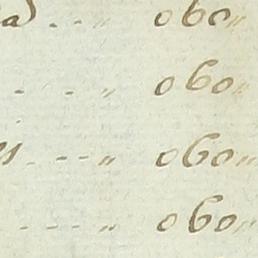 060„
- - „ 060„
- - - „ 060„
- - - „ 060„